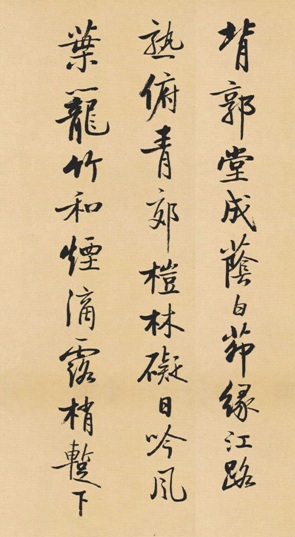 背郭堂成蔭白茆緣江路
熟俯青郊榿林礙日吟風
葉籠竹和煙滴露梢蹔下